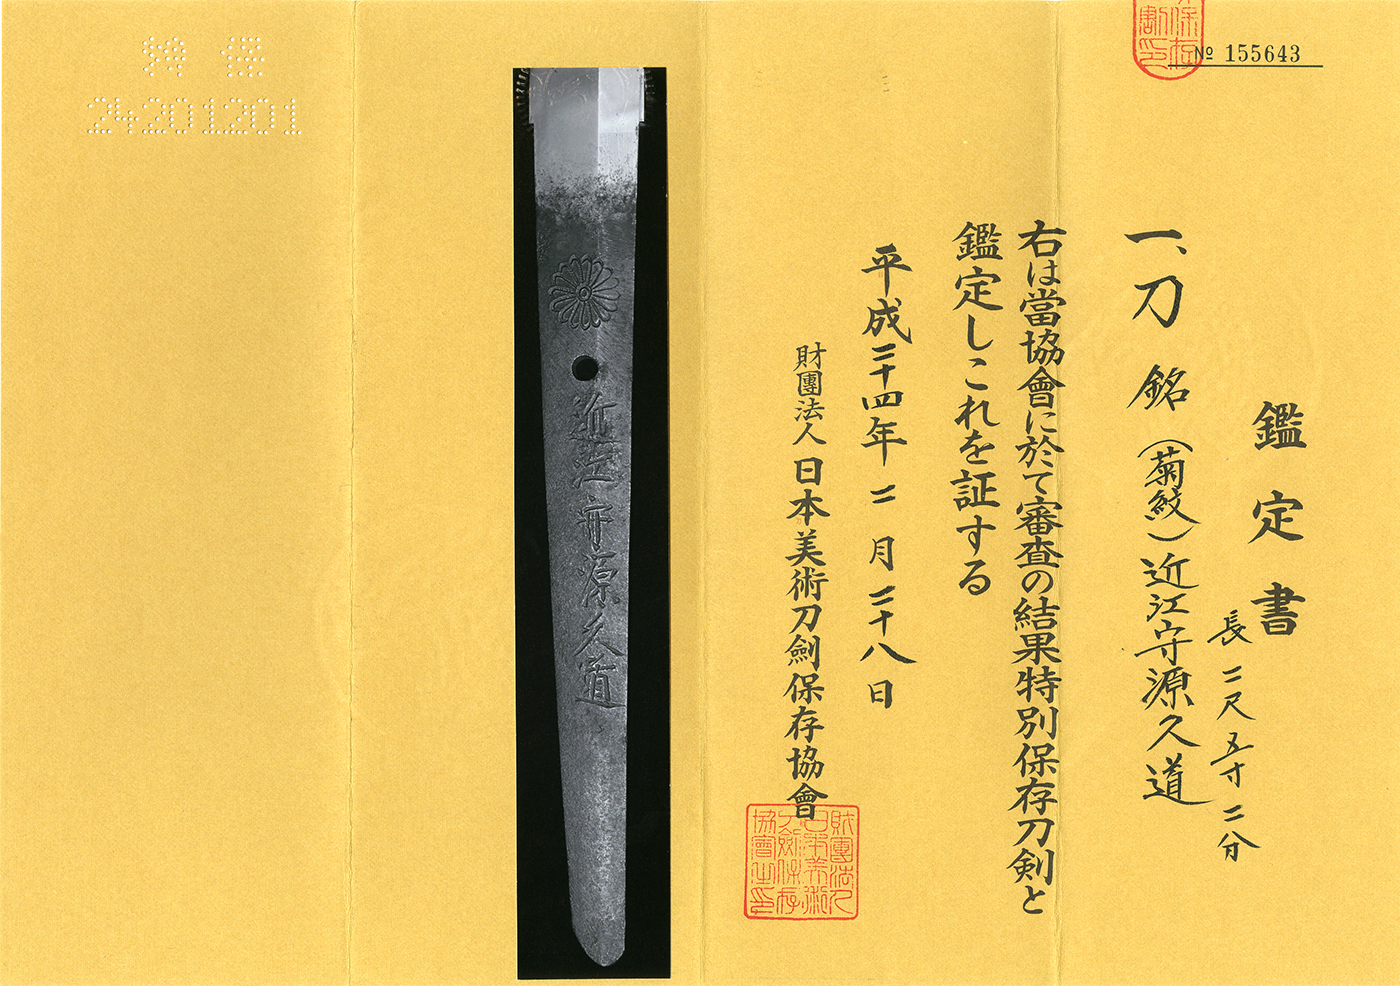 № 155643
鑑定書
一、刀 銘(菊紋)近江守源久道
長二尺五寸二分
右は當協會に於て審査の結果特別保存刀剣と
鑑定しこれを証する
平成二十四年二月二十八日
財團法人日本美術刀劍保存協會
財團法人
日本美術
刀劍保存
協會之印
近江守源久道
特保
24201201